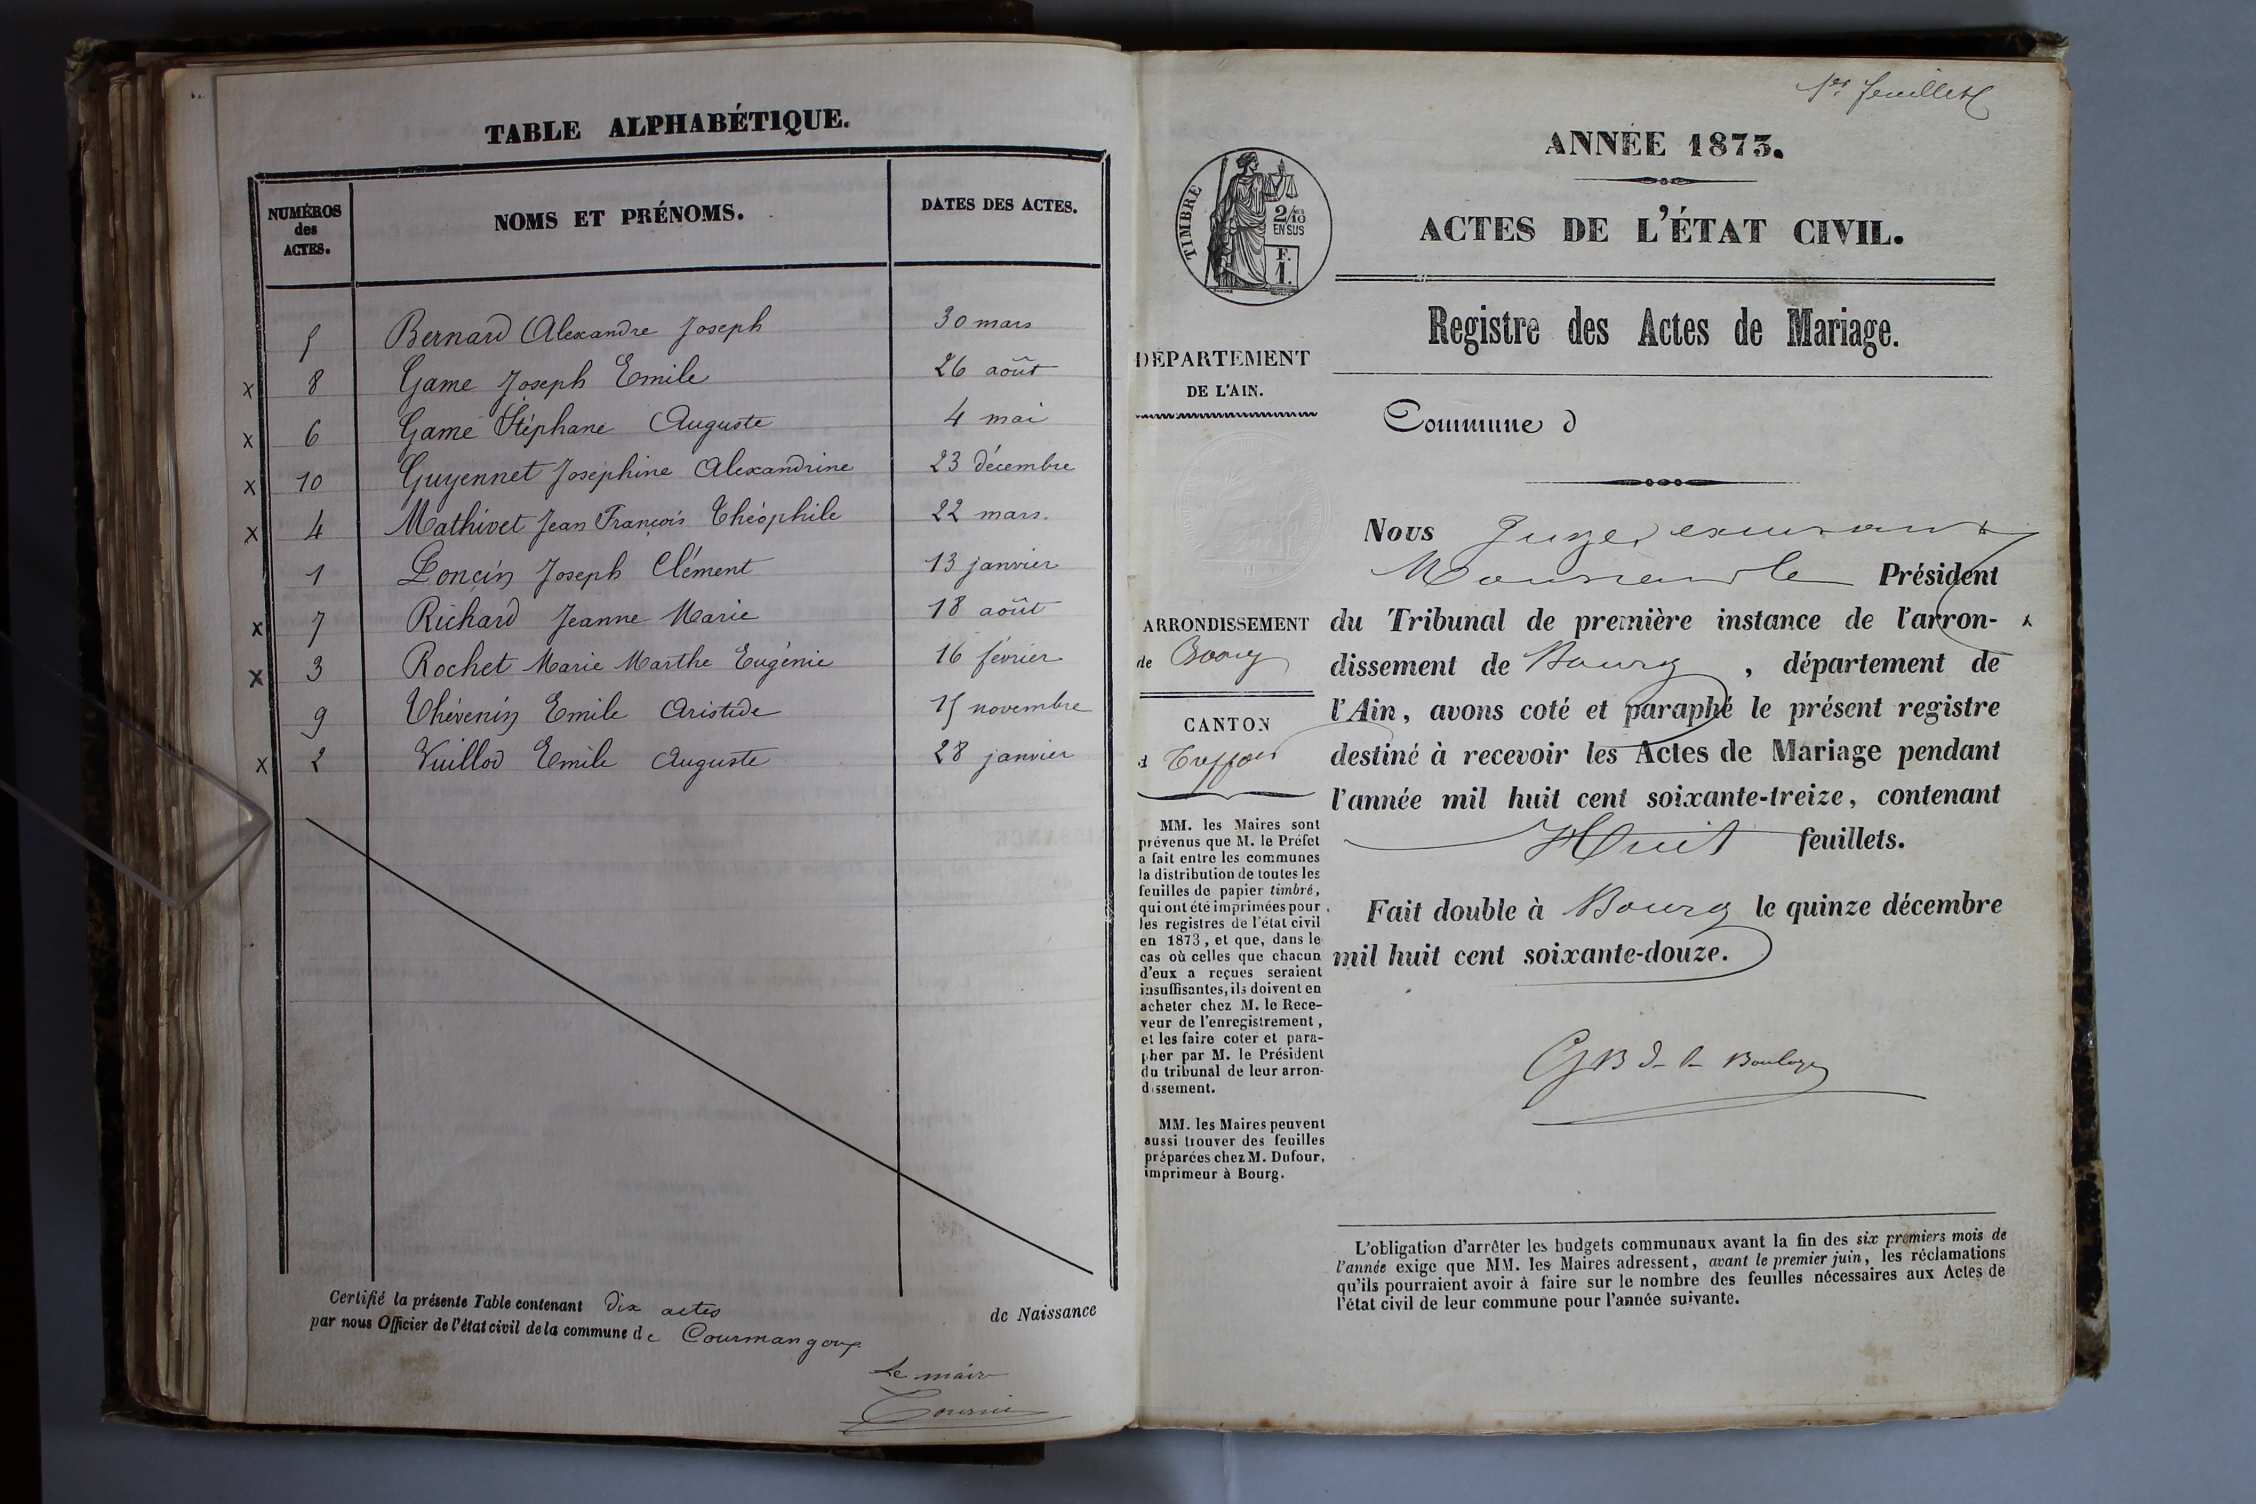 TABLE ALPHABÉTIQUE.
NUMÉROS des ACTES. NOMS ET PRÉNOMS. DATES DES ACTES.
5 Bernard Alexandre Joseph 30 mars
x 8 Game Joseph Emile 26 août
x 6 Game Stéphane Auguste 4 mai
x 10 Guyennet Joséphine Alexandrine 23 décembre
x 4 Mathivet Jean François Théophile 22 mars.
1 Poncin Joseph Clément 13 janvier
x 7 Richard Jeanne Marie 18 août
x 3 Rochet Marie Marthe Eugénie 16 février
9 Thévenin Emile Aristide 15 novembre
x 2 Vuillod Emile Auguste 28 janvier
Certifié la présente Table contenant dix actes de Naissance
par nous Officier de l'état civil de la commune de Courmangoux
Le maire
1er feuillet
ANNÉE 1873.
TIMBRE
2/10 EN SUS
F. 1.
ACTES DE L'ÉTAT CIVIL.
Registre des Actes de Mariage.
DÉPARTEMENT
DE L'AIN.
Commune d
ARRONDISSEMENT
de Bourg
CANTON
d Treffort
MM. les Maires sont
prévenus que M. le Préfet
a fait entre les communes
la distribution de toutes les
feuilles de papier timbré,
qui ont été imprimées pour
les registres de l'état civil
en 1873, et que, dans le
cas où celles que chacun
d'eux a reçues seraient
insuffisantes, ils doivent en
acheter chez M. le Rece-
veur de l'enregistrement,
et les faire coter et para-
pher par M. le Président
du tribunal de leur arron-
dissement.
MM. les Maires peuvent
aussi trouver des feuilles
préparées chez M. Dufour,
imprimeur à Bourg.
Nous Juge
Monsieur le Président
du Tribunal de première instance de l'arron-
dissement de Bourg, département de
l'Ain, avons coté et paraphé le présent registre
destiné à recevoir les Actes de Mariage pendant
l'année mil huit cent soixante-treize, contenant
Huit feuillets.
Fait double à Bourg le quinze décembre
mil huit cent soixante-douze.
L'obligation d'arrêter les budgets communaux avant la fin des six premiers mois de
l'année exige que MM. les Maires adressent, avant le premier juin, les réclamations
qu'ils pourraient avoir à faire sur le nombre des feuilles nécessaires aux Actes de
l'état civil de leur commune pour l'année suivante.